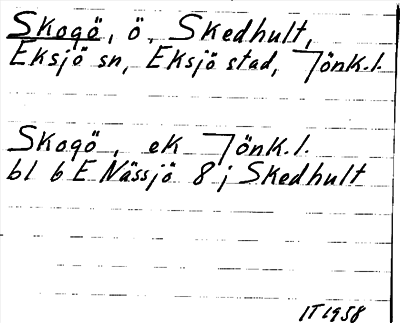 Skogö, ö, Skedhult,
Eksjö sn, Eksjö stad, Jönk.l.
Skogö, ek Jönk.l.
bl 6 E Nässjö 8 i Skedhult
IT 1958